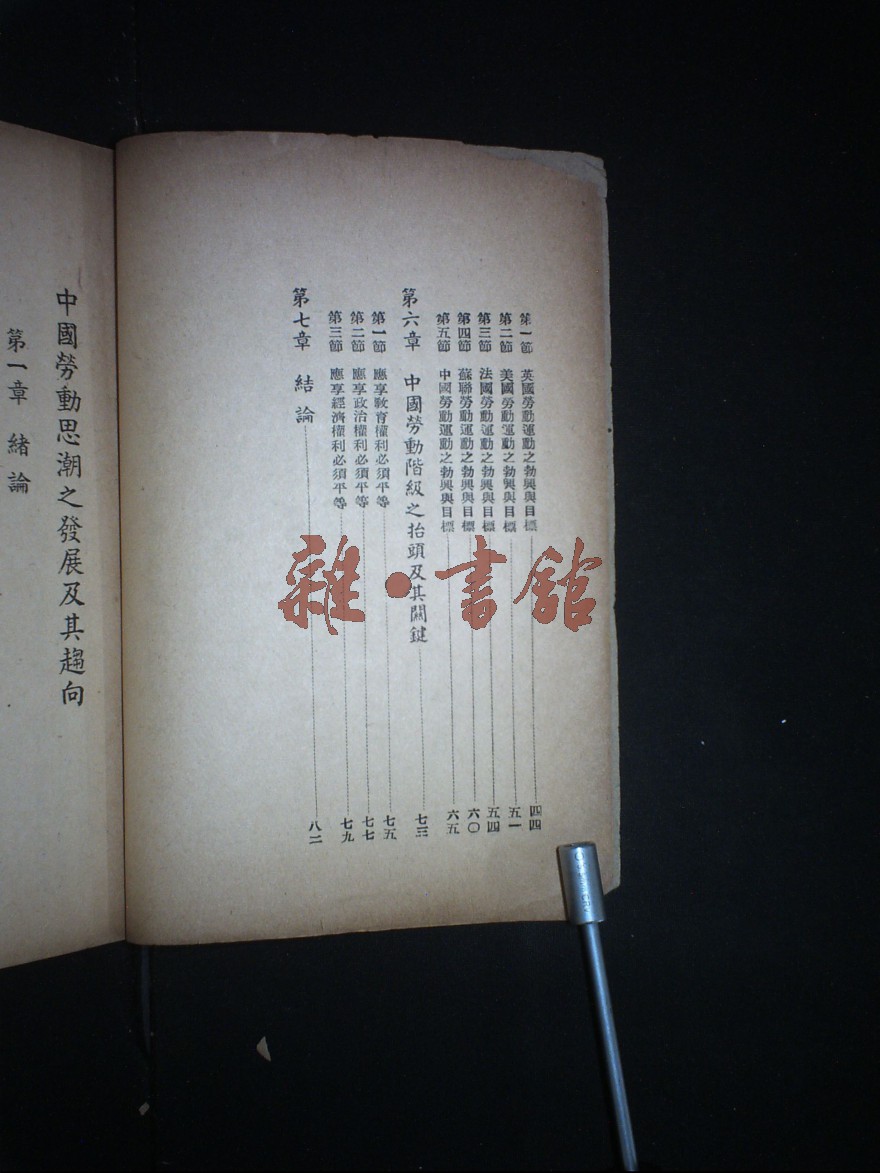 第一節 英國勞動運動之勃興與目標 四四
第二節 美國勞動運動之勃興與目標 五一
第三節 法國勞動運動之勃興與目標 五四
第四節 蘇聯勞動運動之勃興與目標 六〇
第五節 中國勞動運動之勃興與目標 六五
第六章 中國勞動階級之抬頭及其關鍵 七三
第一節 應享教育權利必須平等 七五
第二節 應享政治權利必須平等 七七
第三節 應享經濟權利必須平等 七九
第七章 結論 八二
中國勞動思潮之發展及其趨向
第一章 緒論
雜·書館